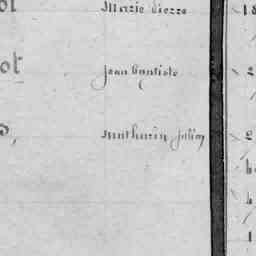 ot Marie Pierre 18
ot Jean Baptiste 2
Mathurin Julien 2
1